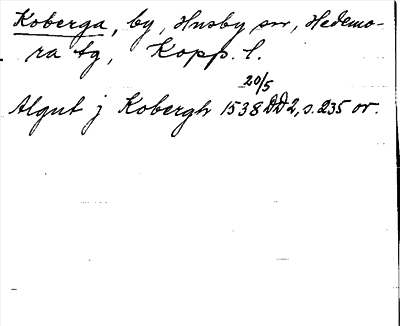 Koberga, by, Husby sn, Hedemo-
ra tg, Kopp. l.
20/5
Algut j Kobergh 1538 DD2, s. 235 or.